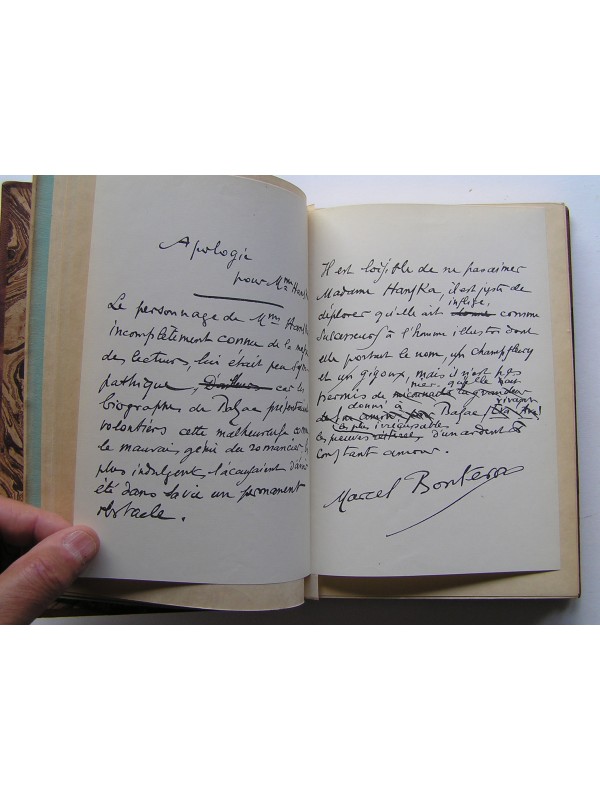 Apologie
pour Mme Hanska
Le personnage de Mme Hanska
incomplètement connu de la
des lecteurs, lui était peu
pathique, D'ailleurs car les
biographes de Balzac présentaient
volontiers cette malheureuse comme
le mauvais génie du romancier. Les
plus indulgents l'accusaient d'avoir
été dans sa vie un permanent
obstacle.
Il est loisible de ne pas aimer
Madame Hanska, il est juste de
infligé,
déplorer qu'elle ait donné comme
successeurs à l'homme illustre dont
elle portait le nom, un Champfleury
et un Gigoux, mais il n'est pas
nier qu'elle
permis de la grandeur
donné à Balzac
les plus irrécusables
les preuves d'un ardent et
constant amour.
Marcel Bouteron